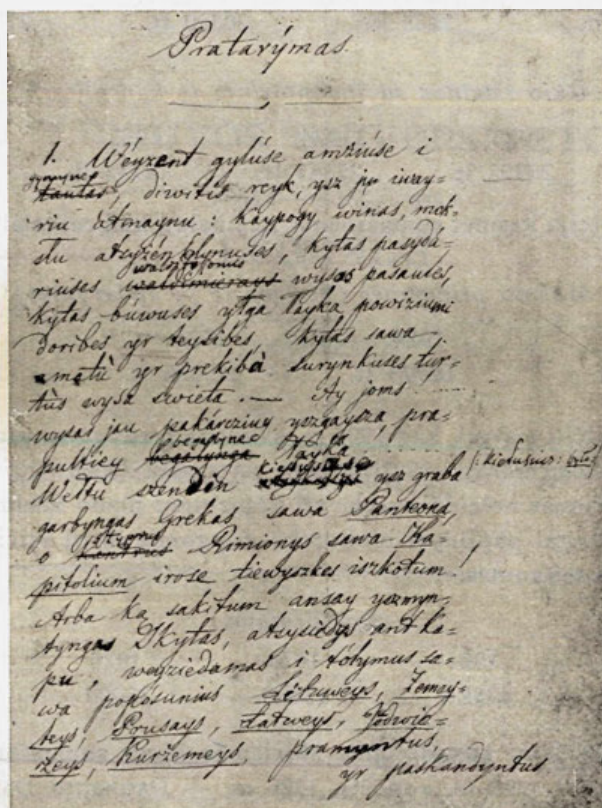 Pratarÿmas.
1. Wéyzent gylúse amžiúse i
gymynes
tautas, diwitis reyk, ysz ju iway-
riu atmaynu: kaypogy winas, mok-
slu atsyżénklynuses, kytas pasydá-
walditojomis
riuses waldimierays wysos pasaules,
kytas búwuses ylga łayka powiziumi
doribes yr teysibes, kytas sawa
amatù yr prekibà surynkuses tur-
tùs wysa swieta. — Ay joms
wysas jau pakárcziuy yszgaysza, pra-
pultiey begalynga łayka
Weltu szenden ysz graba
garbyngas Grekas sawa Panteona,
o Rimionys sawa Ka-
pitolium irose tiewyszkes iszkotum!
Arba ką sakitum ansay yszmyn-
tyngas Skytas, atsysiedys ant ka-
pu, weyziedamas i tobymus sa-
wa poposunius Lëtuweys, Żemay-
teys, Prusays, Łatweys, Jodwie-
żeys, Kurżemeys, pramyntus,
yr paskandyntus.